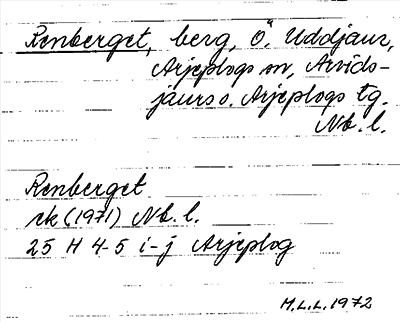 Renberget, berg, Ö. Uddjaur,
Arjeplogs sn, Arvids-
jaurs o. Arjeplogs tg.
Nb. l.
Renberget
rk (1971) Nb. l.
25 H 4-5 i-j Arjeplog
M.L.L. 1972